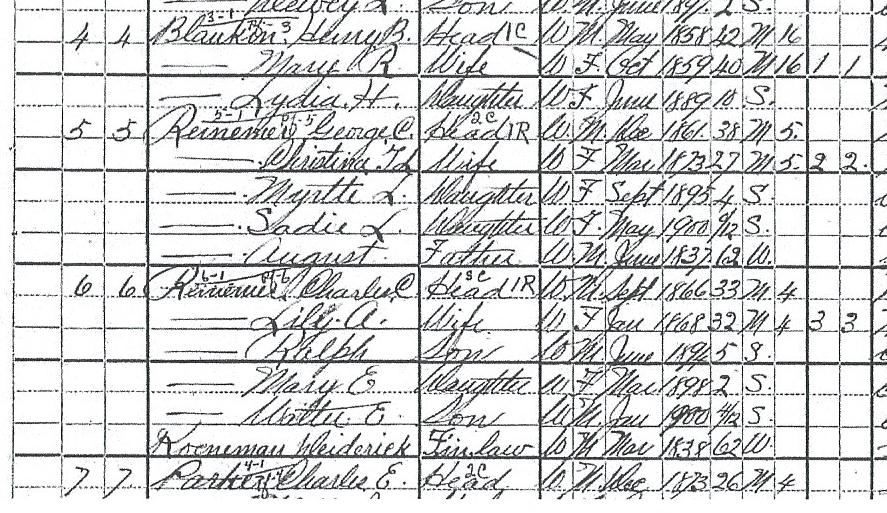 Dewey L. Son W. M. June 1897 2 S.
4 4 Blankon, Henry B. Head 1C W M. May 1858 42 M 16
— Mary R Wife W F. Oct 1859 40 M 16 1 1
— Lydia H. Daughter W F. June 1889 10 S.
5 5 Reinemer, George C. Head 2C 1R W. M. Dec 1861 38 M 5.
— Christina Wife W F Mar 1873 27 M 5 2 2.
— Myrtle L. Daughter W F Sept 1895 4 S.
— Sadie L. Daughter W F. May 1900 /12 S.
— August Father W M. June 1837 62 W.
6 6 Reinemer, Charles C Head 1R W M. Sept 1866 33 M 4
— Lily A. Wife W F Jan 1868 32 M 4 3 3
— Ralph Son W M. June 5 S.
— Mary E Daughter W F Mar 1898 2 S.
— E. Son W M. Jan 1900 4/12 S.
Koeneman Deiderick F in law W M Mar 1838 62 W.
7 7 Parker, Charles E. Head 2C W M. Dec 1873 26 M 4